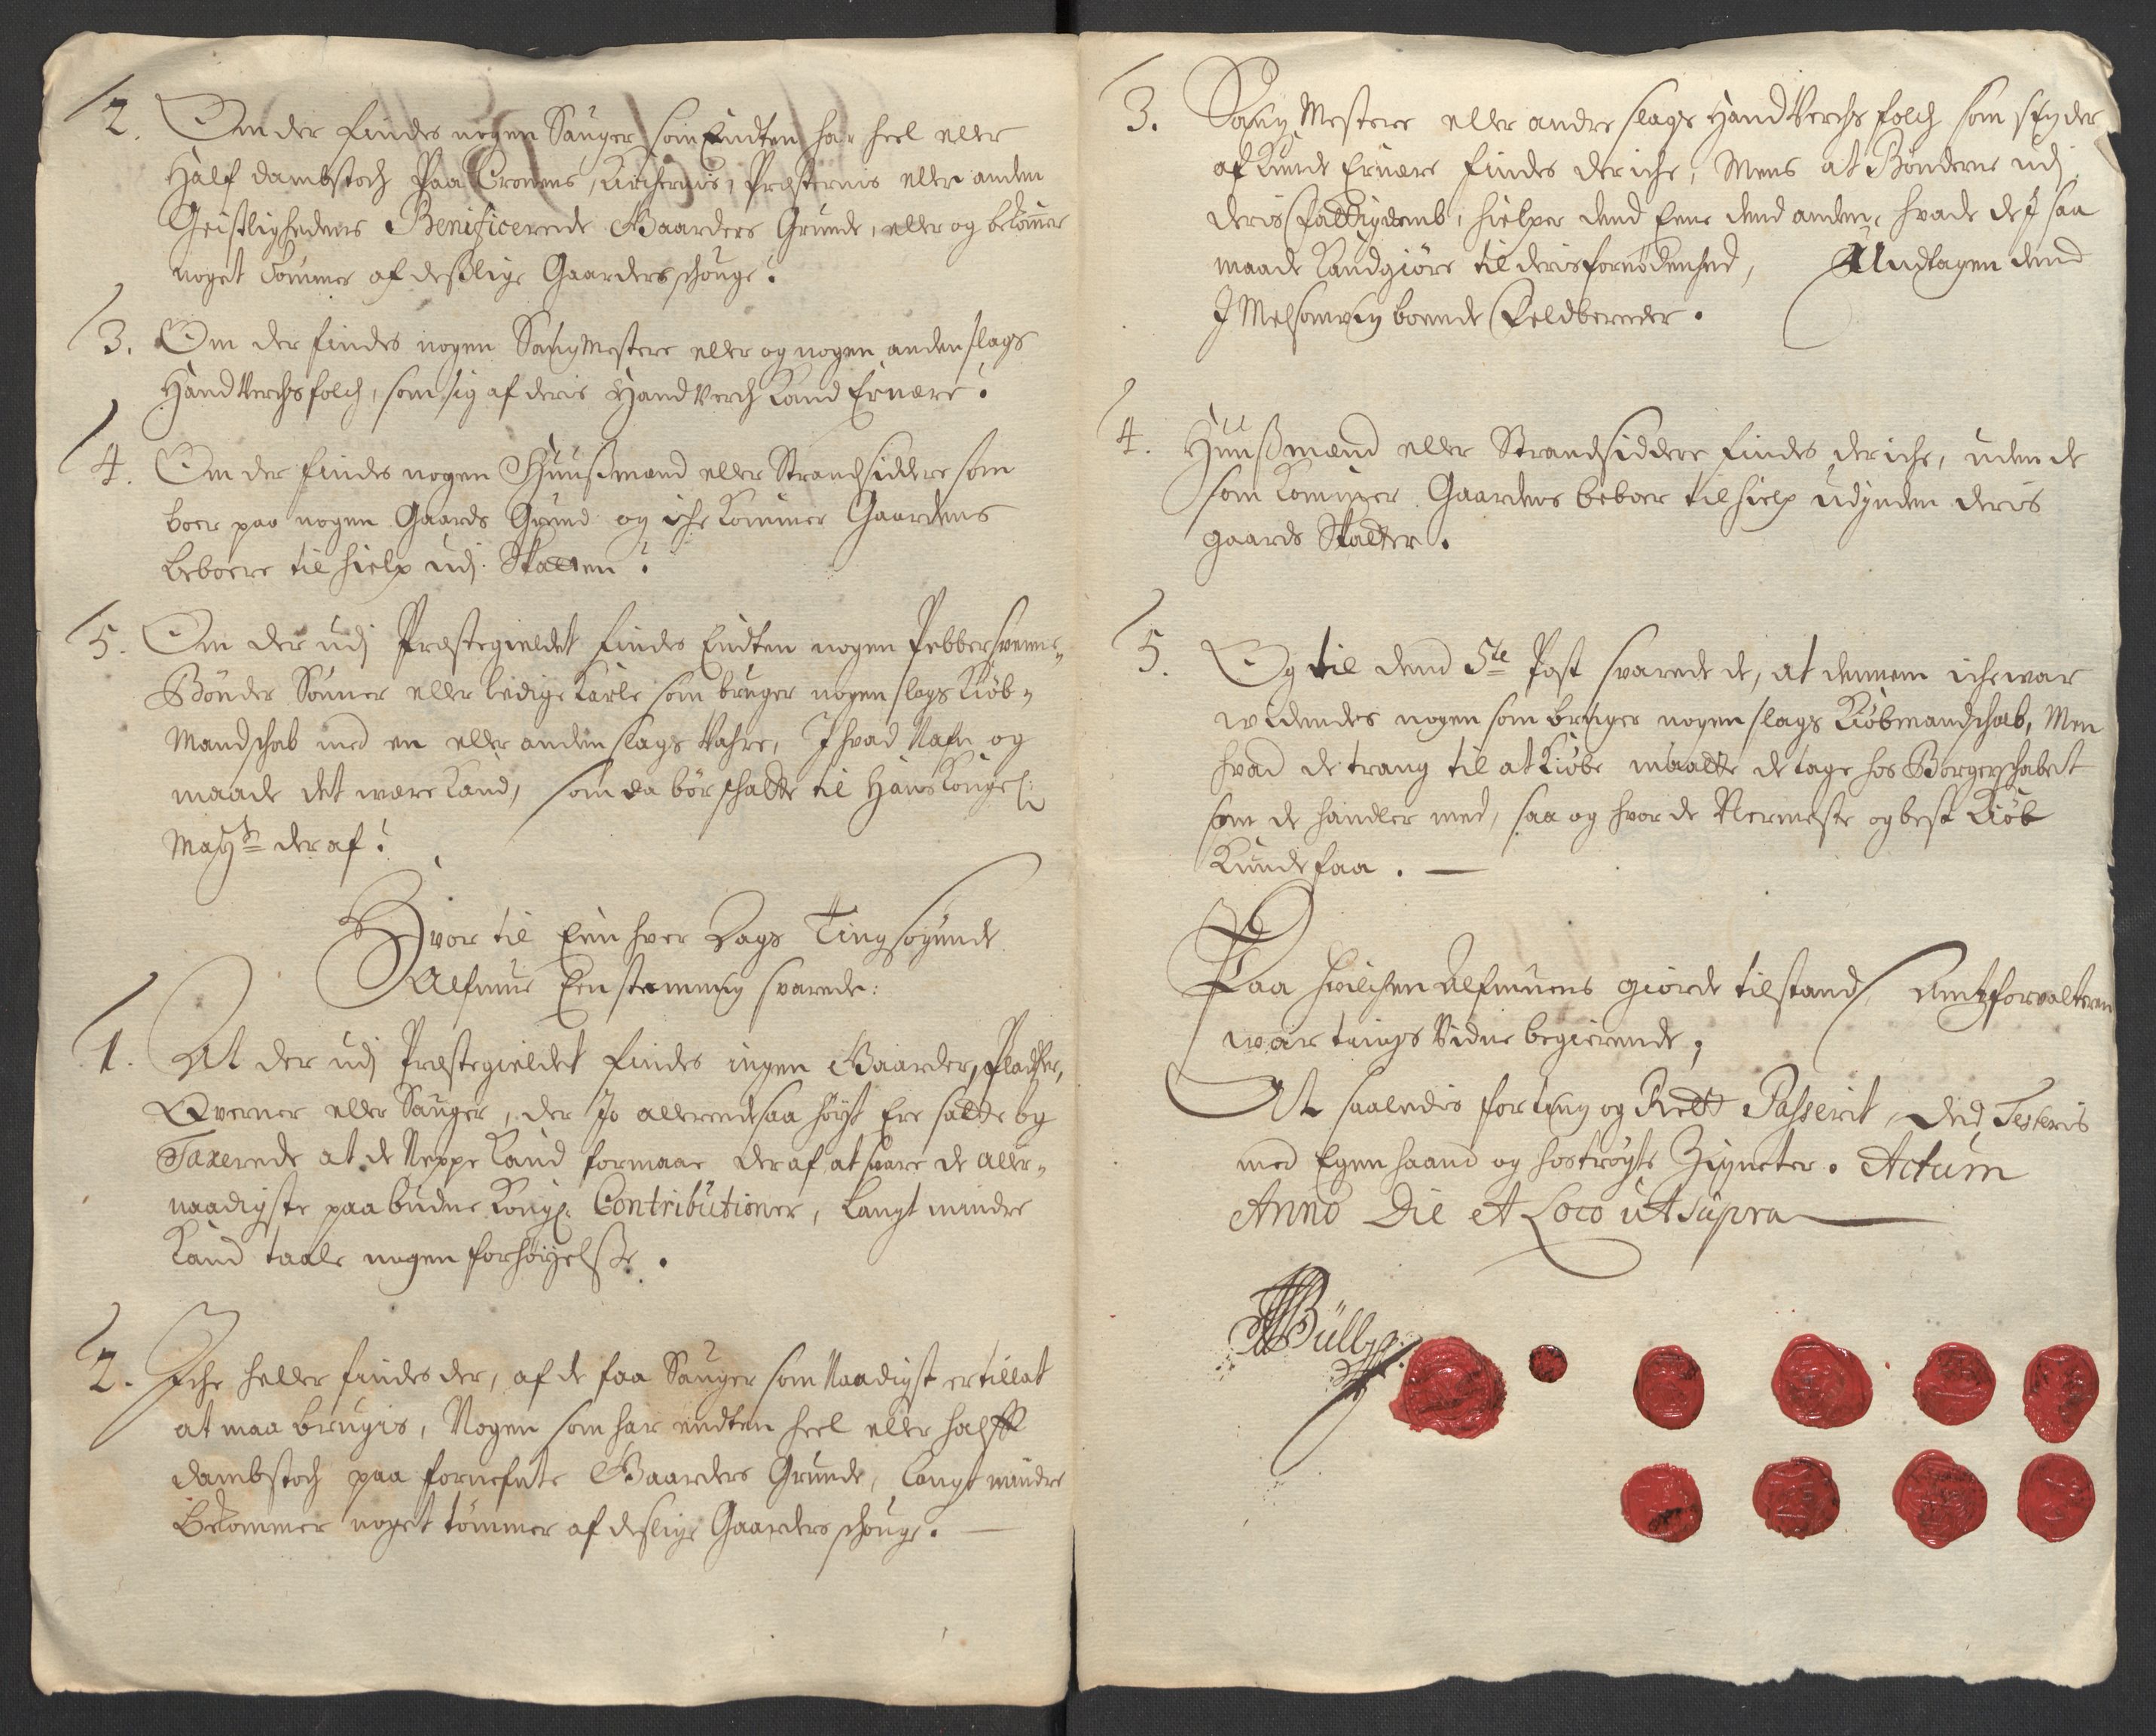 2. Om der findes nogen Sauger som Endten har heel eller
Half dambstoch Paa Cronens, Kirchernis, Præsternis eller anden
Geistlighedens Beneficerede Gaarders Grunde, eller og bekomer
noget Tømmer af deslige Gaarders schouge?
3. Om der findes nogen Saug Mestere eller og nogen anden slags
Handtverchsfolch, som sig af deris Handtverch Kand Ernære?
4. Om der findes nogen Huusmænd eller Strandsiddere som
boer paa nogen Gaards Grund og iche kommer Gaardens
beboere til hielp udj Skatten?
5. Om der udj Præstegieldet findes Endten nogen Pebbersvenne
Bønder Sønner eller ledige Karle som bruger nogen slags Kiøb-
Mandschab med en eller anden slags Vahre, J hvad Nafn og
maade det være Kand, som da bør schatte til Hans Kongel:
May:ts deraf?
Hvor til Een hver Dags Tingsøgende
Almue Eenstemmig svarede:
1. At der udj Præstegieldet findes ingen Gaarder, Pladtzer,
Qverner eller Sauger, der Jo allerede saa høyt Ere satte og
Taxerede at de Neppe Kand formaae deraf at svare de aller-
naadigste paabudne Kongl. Contributioner, langt mindre
Kand taale nogen forhøyelsse.
2. Iche heller findes der, af de faa Sauger som Naadigst er tillat
at maa brugis, Nogen som har endten heel eller halft
dambstoch paa fornefnte Gaarders Grunde, langt mindre
Bekommer noget tømmer af deslige Gaarders schouge.
3. Saug Mestere eller andre slags Handtverchs folch som sig der
af Kunde Ernære findes der iche, Mens at Bønderne udj
deris fattigdomb, hielper dend Eene dend anden, hvade de J saa
maade Kand giøre til deris fornødenhed, Undtagen dend
J Melsomvig boende Feldbereder.
4. Huusmænd eller Strandsiddere findes der iche, uden de
som kommer Gaardens beboer til hielp udj deris
gaards Skatter.
5. Og til dend 5te Post svarede de, at dennem iche war
widendes nogen som bruger nogen slags Kiøbmandschab, Men
hvad de trang til at Kiøbe maatte de tage hos Borgerschabet
som de handler med, saa og hvor de Nermeste og best Kiøb
Kunde faa.
Paa hvilchen Almuens giorde tilstand, Amtsforvalteren
war tings Vidne begierende,
At saaledis for ting og Rett Passerit, Det Testeris
med Egen haand og hostrøgte Zigneter. Actum
Anno Die et Loco ut supra